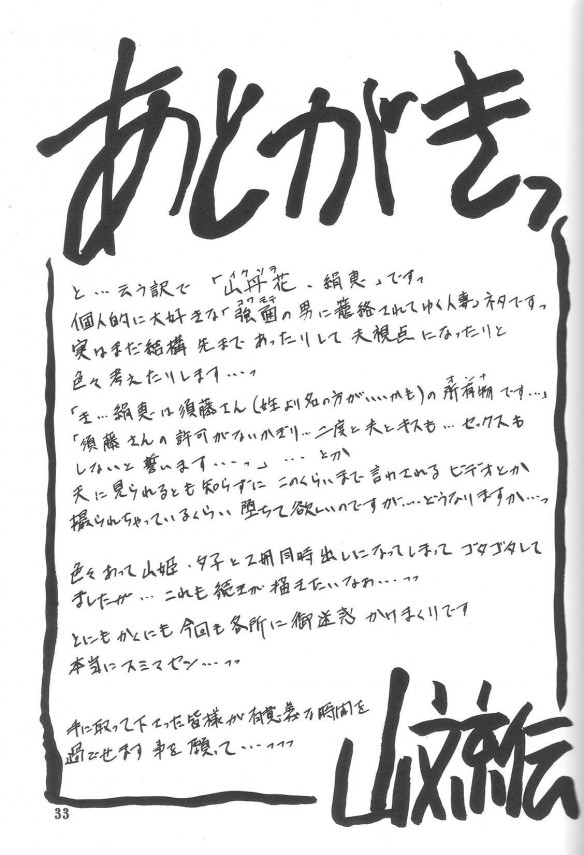 あとがきっ
と…云う訳で「山丹花・絹恵」ですっ
個人的に大好きな「強面の男に籠絡されてゆく人妻」ネタですっ
実はまだ結構 先まで あったりして 夫視点 になったりと
色々考えたりします…っ
「…絹恵は須藤さん(姓より名の方がいいかも)の所有物です…」
「須藤さんの許可がないかぎり…二度と夫とキスも…セックスも
しないと誓います…っ」…とか
夫に見られるとも知らずに このくらいまで言わされる ビデオとか
撮られちゃっているくらい 堕ちて欲しいのですが…どうなりますか…っ
色々あって山姫・夕子と2冊同時出しになってしまって ゴタゴタして
ましたが… これも続きが描きたいなぁ…っっ
とにもかくにも 今回も各所に御迷惑 かけまくりです
本気にスミマセン…っっ
手に取って下さった皆様が有意義な時間を
過ごせます事を願って…っっっ
山文京伝
33